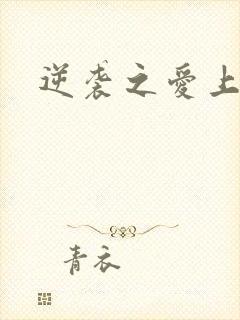 逆袭之爱上
青衣